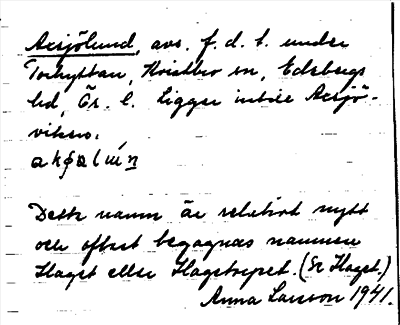 Axsjölund, avs. f.d. t. under
Torhyttan, Kristber sn, Edsbergs
hd, Ör. l. Ligger intill Axsjö-
viken.
Detta namn är relativt nytt
och oftast begagnas namnen
Haget eller Hagetorpet. (Se Haget.)
Anna Larsson 1941.